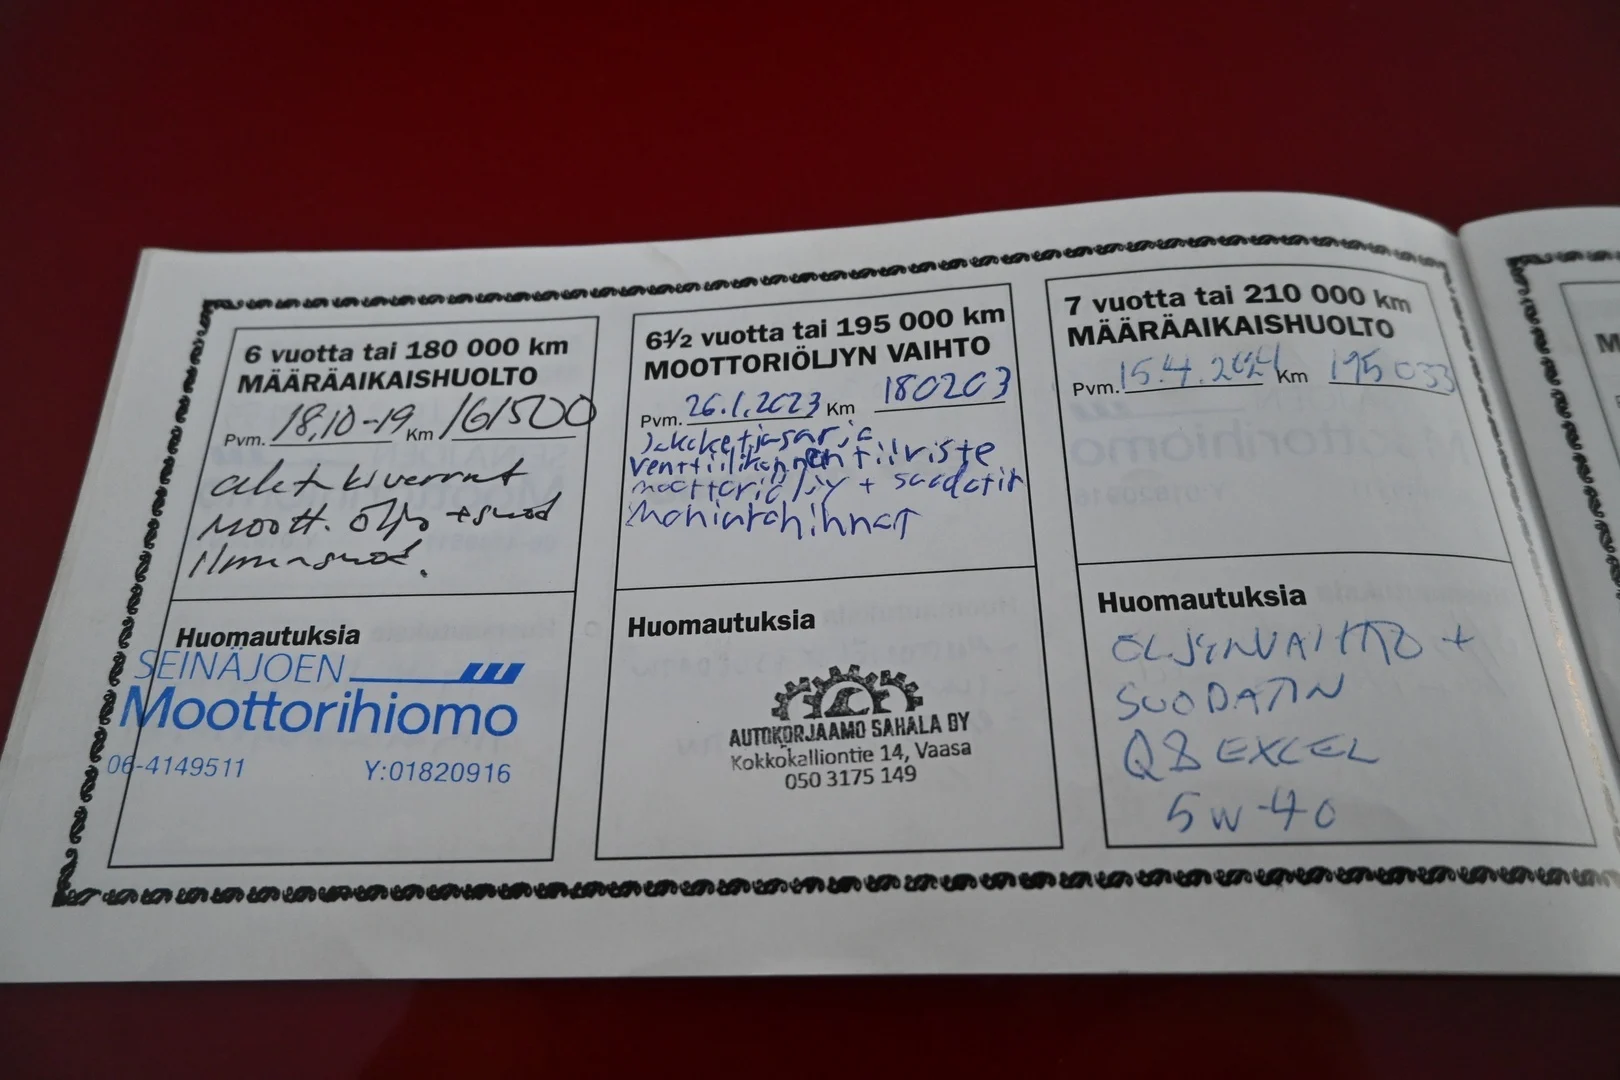 6 vuotta tai 180 000 km
MÄÄRÄAIKAISHUOLTO
Pvm. 18.10-19 Km 161500
moott. öljy + suod
ilmansuod.
Huomautuksia
SEINÄJOEN
Moottorihiomo
06-4149511 Y:01820916
6½ vuotta tai 195 000 km
MOOTTORIÖLJYN VAIHTO
Pvm. 26.1.2023 Km 180203
Jakoketjusarja
venttiilikopan tiiviste
moottoriöljy + suodatin
Moniurahihnat
Huomautuksia
AUTOKORJAAMO SAHALA OY
Kokkokalliontie 14, Vaasa
050 3175 149
7 vuotta tai 210 000 km
MÄÄRÄAIKAISHUOLTO
Pvm. 15.4.2024 Km 195033
Huomautuksia
ÖLJYNVAIHTO +
SUODATIN
Q8 EXCEL
5W-40
M